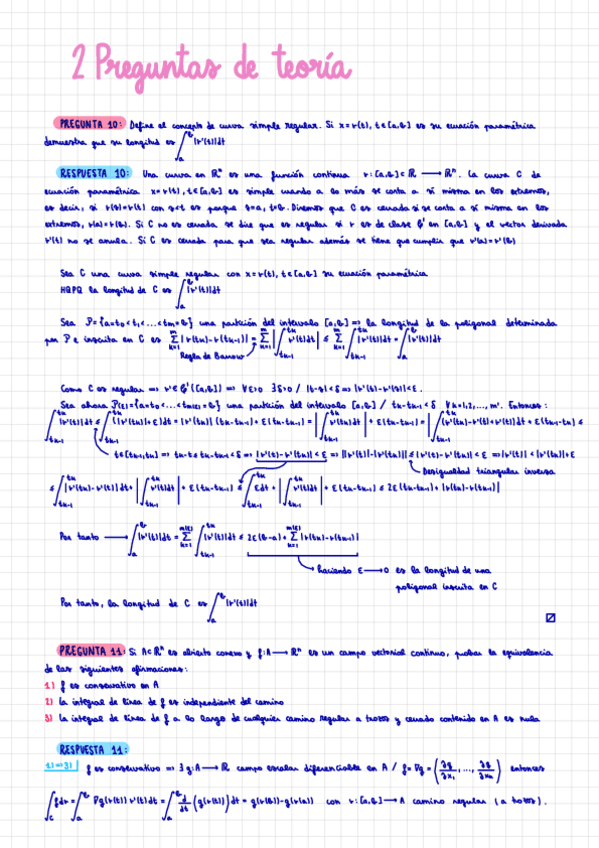 2 Preguntas de teoría
PREGUNTA 10: Define el concepto de curva simple regular. Si x=r(t), t∈[a,b] es su ecuación paramétrica
demuestra que su longitud es ∫_a^b |r'(t)|dt
RESPUESTA 10: Una curva en ℝⁿ es una función continua r:[a,b]⊂ℝ ⟶ ℝⁿ. La curva C de
ecuación paramétrica x=r(t), t∈[a,b] es simple cuando a lo más se corta a sí misma en los extremos,
es decir, si r(s)=r(t) con s<t es porque s=a, t=b. Diremos que C es cerrada si se corta a sí misma en los
extremos, r(a)=r(b). Si C no es cerrada se dice que es regular si r es de clase 𝒞' en [a,b] y el vector derivada
r'(t) no se anula. Si C es cerrada para que sea regular además se tiene que cumplir que r'(a)=r'(b)
Sea C una curva simple regular con x=r(t), t∈[a,b] su ecuación paramétrica
HQPQ la longitud de C es ∫_a^b |r'(t)|dt
Sea P={a=t₀<t₁<...<tm=b} una partición del intervalo [a,b] ⇒ la longitud de la poligonal determinada
por P e inscrita en C es Σ_{k=1}^m |r(tk)-r(tk-1)| = Σ_{k=1}^m |∫_{tk-1}^{tk} r'(t)dt| ≤ Σ_{k=1}^m ∫_{tk-1}^{tk} |r'(t)|dt = ∫_a^b |r'(t)|dt
Regla de Barrow
Como C es regular ⇒ r'∈𝒞([a,b]) ⇒ ∀ε>0 ∃δ>0 / |t-s|<δ ⇒ |r'(t)-r'(s)|<ε.
Sea ahora P(ε)={a=t₀<...<tm(ε)=b} una partición del intervalo [a,b] / tk-tk-1<δ ∀k=1,2,...,m. Entonces:
∫_{tk-1}^{tk} |r'(t)|dt ≤ ∫_{tk-1}^{tk} (|r'(tk)|+ε)dt = |r'(tk)|(tk-tk-1)+ε(tk-tk-1) = |∫_{tk-1}^{tk} r'(tk)dt| + ε(tk-tk-1) = |∫_{tk-1}^{tk} (r'(tk)-r'(t)+r'(t))dt| + ε(tk-tk-1) ≤
t∈[tk-1,tk] ⇒ tk-t≤tk-tk-1<δ ⇒ |r'(t)-r'(tk)|<ε ⇒ ||r'(t)|-|r'(tk)|| ≤ |r'(t)-r'(tk)|<ε ⇒ |r'(t)|<|r'(tk)|+ε
Desigualdad triangular inversa
≤ ∫_{tk-1}^{tk} |r'(tk)-r'(t)|dt + |∫_{tk-1}^{tk} r'(t)dt| + ε(tk-tk-1) ≤ ∫_{tk-1}^{tk} εdt + |∫_{tk-1}^{tk} r'(t)dt| + ε(tk-tk-1) ≤ 2ε(tk-tk-1)+|r(tk)-r(tk-1)|
Por tanto ⟶ ∫_a^b |r'(t)|dt = Σ_{k=1}^{m(ε)} ∫_{tk-1}^{tk} |r'(t)|dt ≤ 2ε(b-a)+Σ_{k=1}^{m(ε)} |r(tk)-r(tk-1)|
haciendo ε⟶0 es la longitud de una
poligonal inscrita en C
Por tanto, la longitud de C es ∫_a^b |r'(t)|dt
PREGUNTA 11: Si A⊂ℝⁿ es abierto conexo y f:A⟶ℝⁿ es un campo vectorial continuo, probar la equivalencia
de las siguientes afirmaciones:
1) f es conservativo en A
2) La integral de línea de f es independiente del camino
3) La integral de línea de f a lo largo de cualquier camino regular a trozos y cerrado contenido en A es nula
RESPUESTA 11:
1)⇒3) f es conservativo ⇒ ∃ g:A⟶ℝ campo escalar diferenciable en A / f=∇g=(∂g/∂x₁,...,∂g/∂xₙ) entonces
∫_C fdr = ∫_a^b ∇g(r(t)) r'(t)dt = ∫_a^b d/dt (g(r(t)))dt = g(r(b))-g(r(a)) con r:[a,b]⟶A camino regular (a trozos).